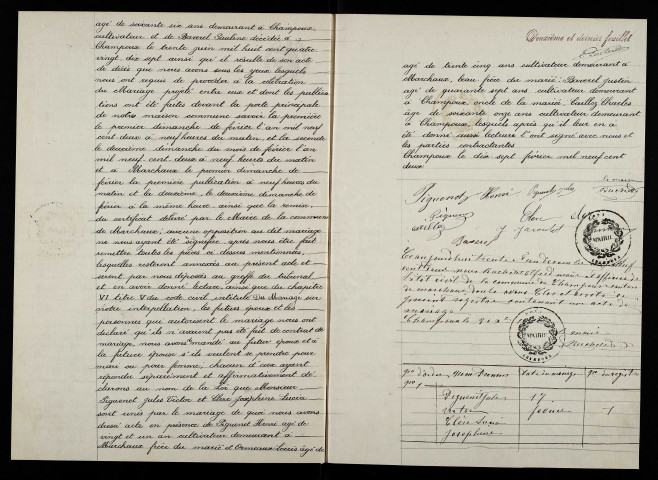 agé de soixante six ans demeurant à Champoux
cultivateur et de Baverel Pauline décédée à
Champoux le trente juin mil huit cent quatre
vingt dix sept ainsi qu'il résulte de son acte
de décès que nous avons sous les yeux lesquels
nous ont requis de procéder à la célébration
du Mariage projeté entre eux et dont les publica
tions ont été faites devant la porte principale
de notre maison commune savoir la première
le premier dimanche de février l'an mil neuf
cent deux à neuf heures du matin, et la seconde
le deuxième dimanche du mois de février l'an
mil neuf cent deux à neuf heures du matin
et à Marchaux le premier dimanche de
février la première publication à neuf heures du
matin et la deuxième, le deuxième dimanche de
février à la même heure ainsi que la remise
du certificat délivré par le Maire de la commune
de Marchaux; aucune opposition au dit mariage
ne nous ayant été signifiée après nous être fait
remettre toutes les pièces ci dessus mentionnées,
lesquelles resteront annexées au présent acte et
seront par nous déposées au greffe du tribunal
et en avoir donné lecture, ainsi que du chapitre
VI titre V du code civil intitulé Du Mariage sur
notre interpellation, les futurs époux et les
personnes qui autorisent le mariage nous ont
déclaré qu'ils n'avaient pas été fait de contrat de
mariage, nous avons demandé au futur époux et à
la future épouse s'ils veulent se prendre pour
mari ou pour femme, chacun d'eux ayant
répondu séparément et affirmativement dé
clarons au nom de la Loi que Monsieur
Piguenet Jules Victor et Clerc Joséphine Lucia
sont unis par le mariage de quoi nous avons
dressé acte en présence de Piguenet Henri agé de
vingt et un an cultivateur demeurant à
Marchaux frère du marié et Louis agé de
Deuxième et dernier feuillet
agé de trente cinq ans cultivateur demeurant à
Marchaux, beau frère du marié: Baverel Justin
agé de quarante sept ans cultivateur demeurant
à Champoux oncle de la mariée Caillez Charles
agé de soixante onze ans cultivateur demeurant
à Champoux, lesquels après qu'il leur en a
été donné aussi lecture l'ont signé avec nous et
les parties contractantes
Champoux le dix sept février mil neuf cent
deux
Le maire
Piguenet Henri Piguenet Jules
Clerc
Baverel
MAIRIE
CHAMPOUX
maire officier de
l'état civil de la commune de Champoux canton
de Marchaux
présent registre contenant un acte de
mariage
Champoux le
MAIRIE
CHAMPOUX
Le maire
No d'ordre Noms Prénoms Date du mariage No du registre
No 1
Piguenet Jules 17
Victor février 1
Clerc Lucia
Joséphine